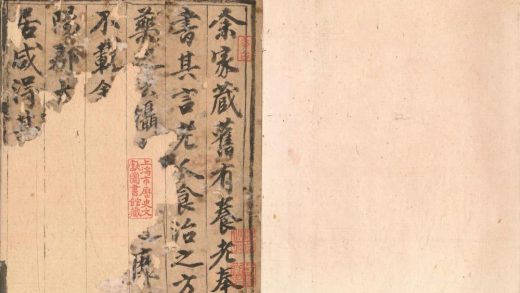 余家藏舊有養老奉
書其言老人食治之方
藥之攝靡
不載今
陽郡
居咸得其
上海市歷史文
獻圖書館藏